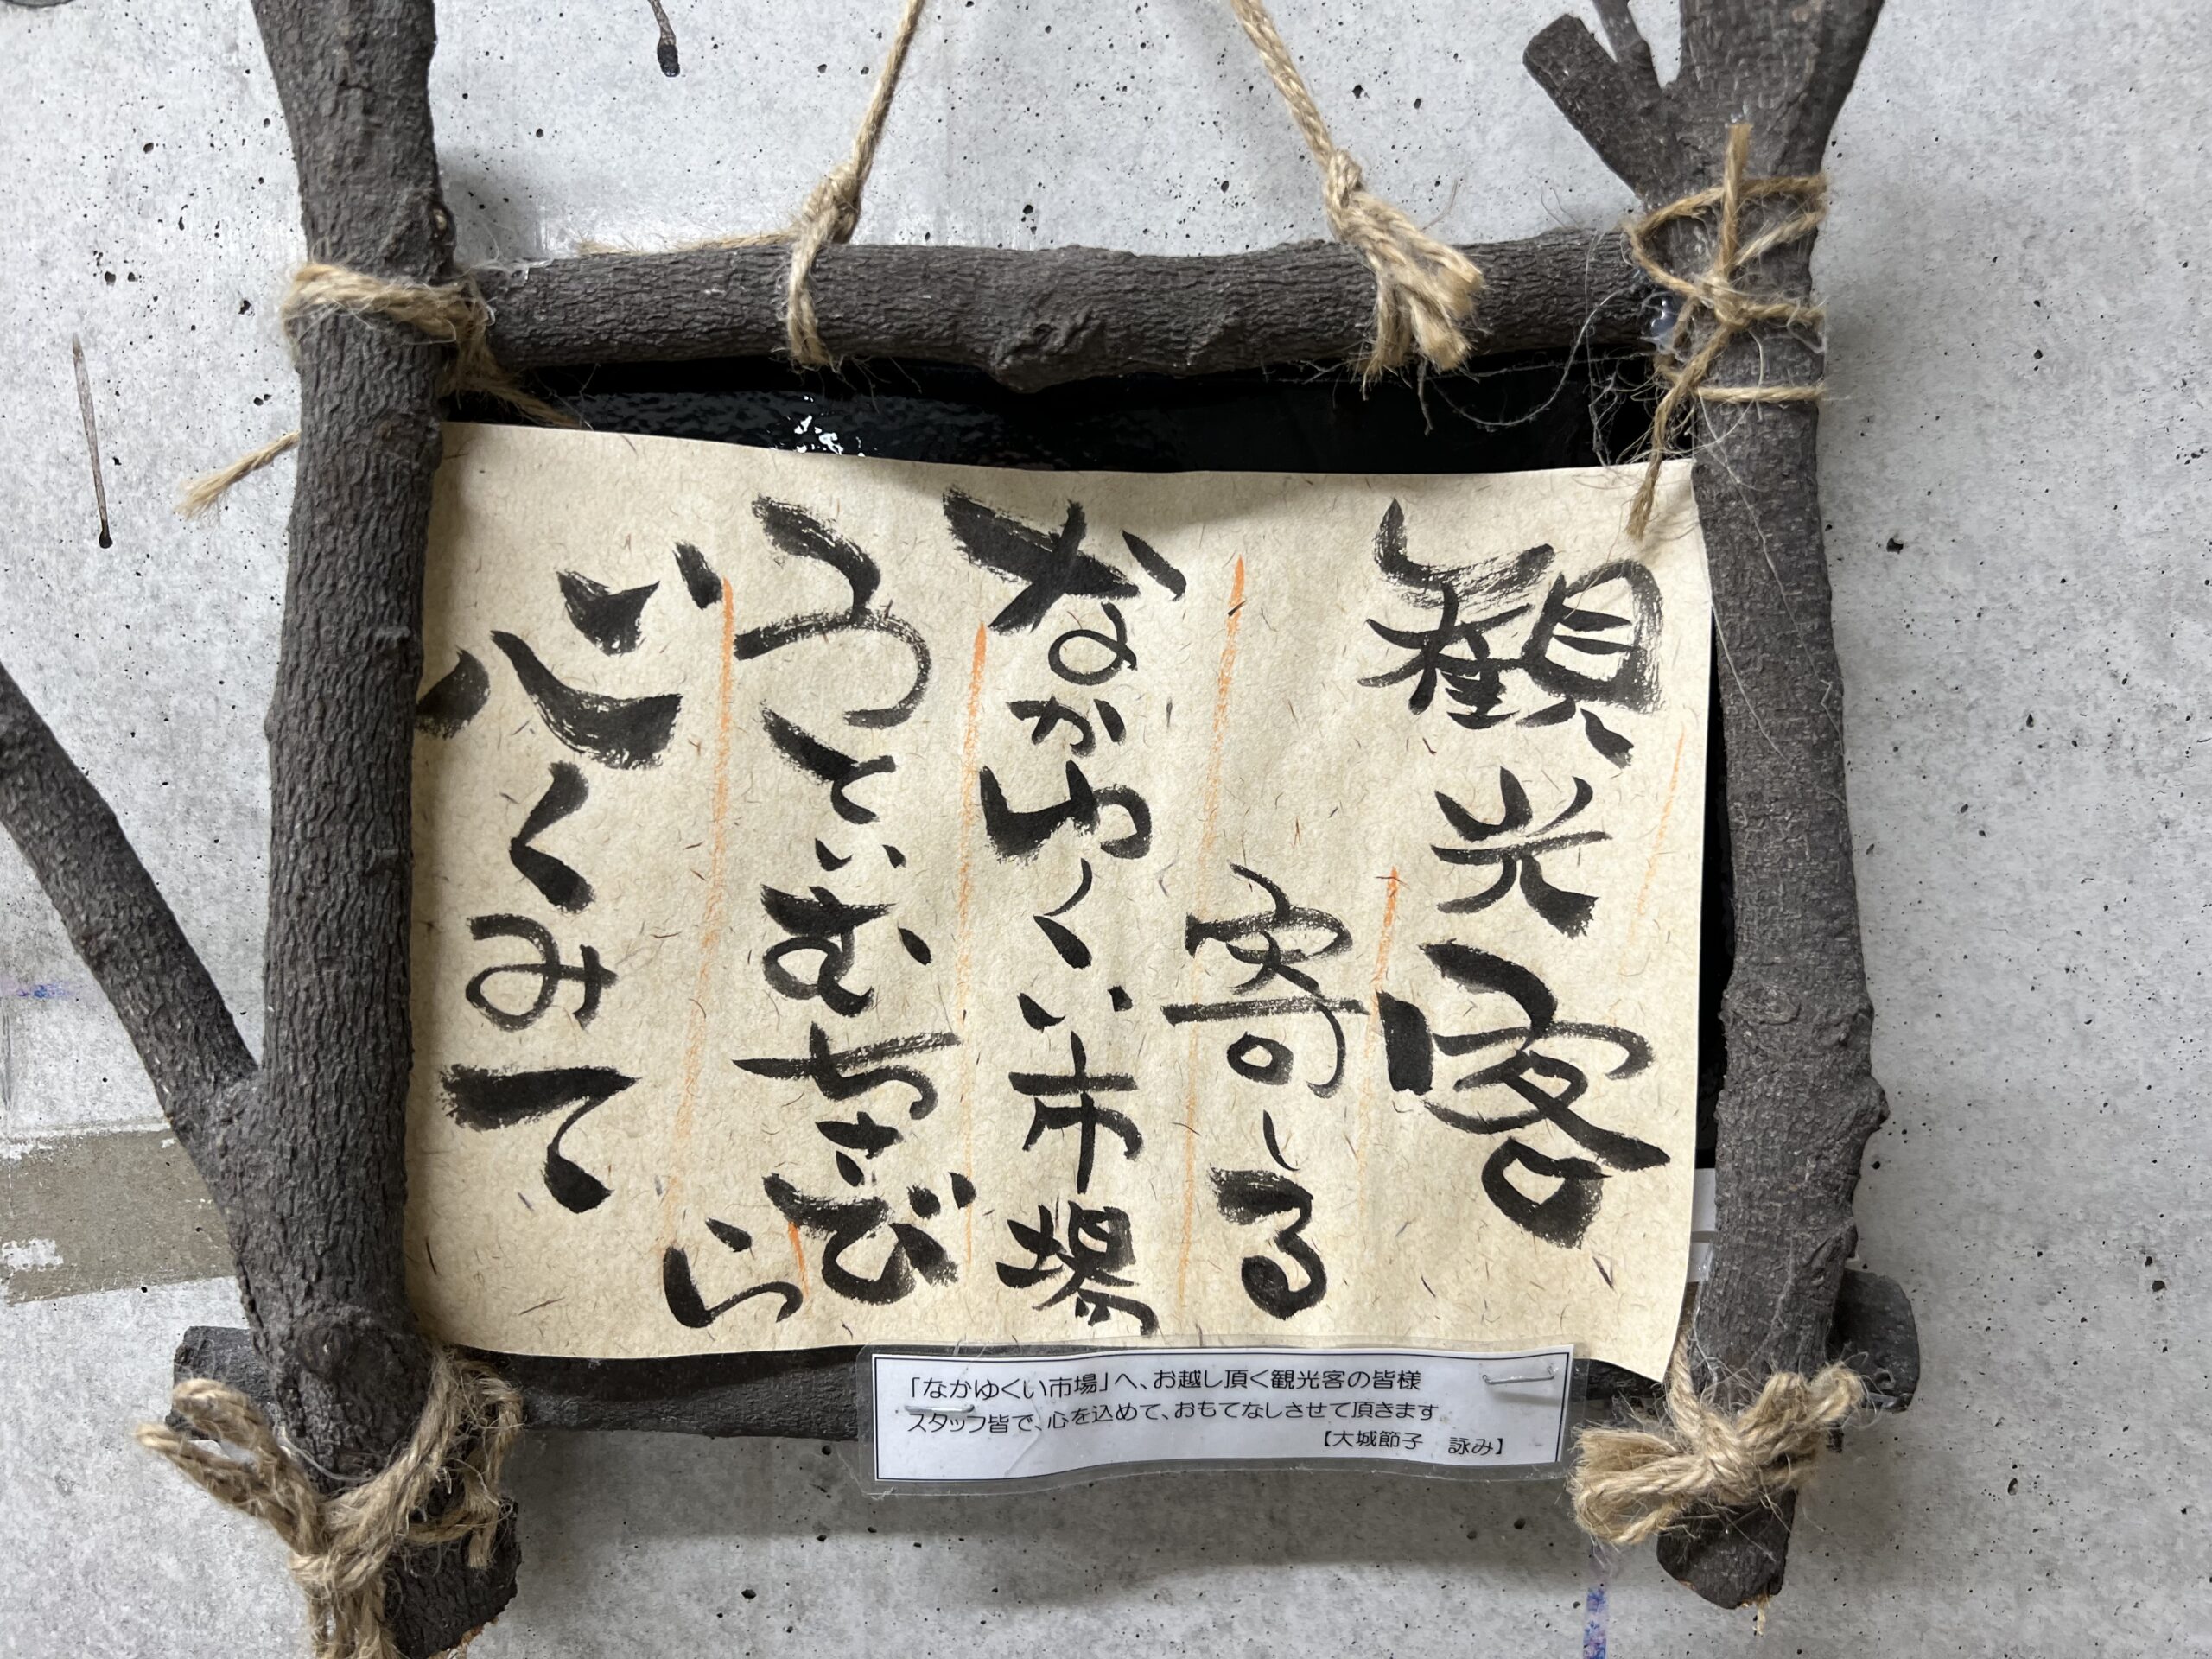 観光客
寄しる
なかゆくい市場
うとぅいむちさびら
心くみて
「なかゆくい市場」へ、お越し頂く観光客の皆様
スタッフ皆で、心を込めて、おもてなしさせて頂きます
【大城節子 詠み】